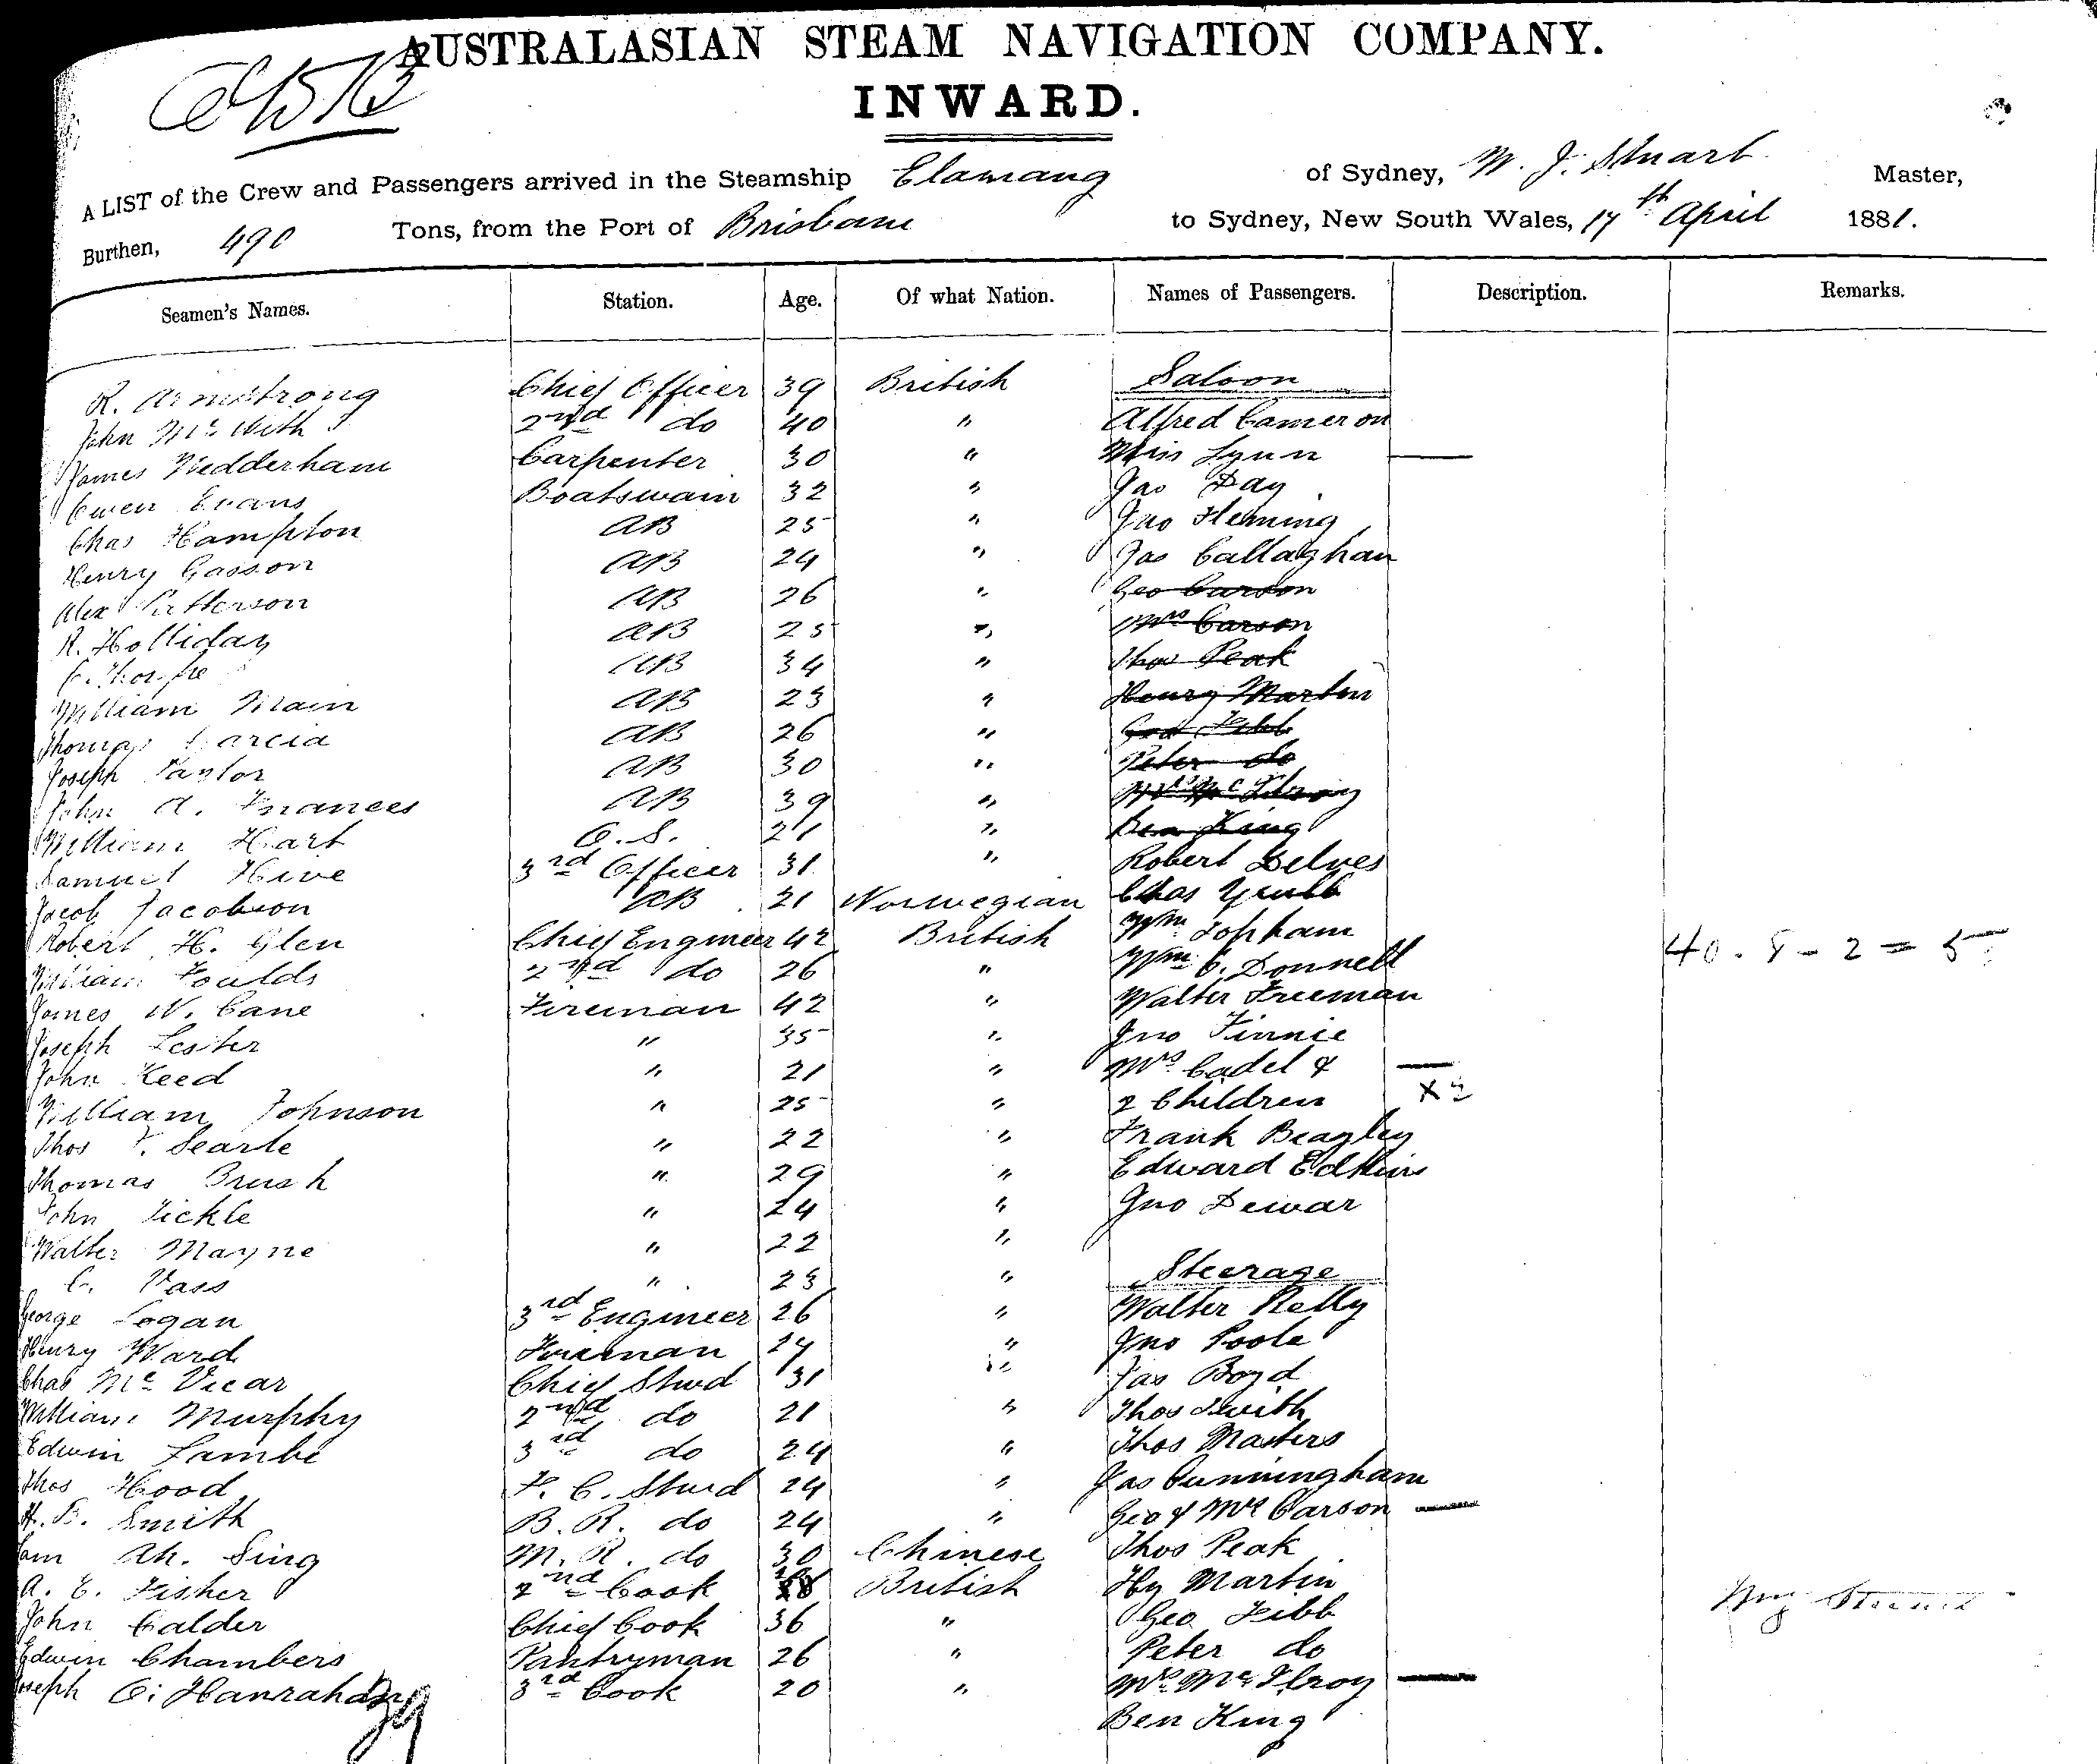 AUSTRALASIAN STEAM NAVIGATION COMPANY.
INWARD.
A LIST of the Crew and Passengers arrived in the Steamship Elamang of Sydney, W. J. Stuart Master,
Burthen, 490 Tons, from the Port of Brisbane to Sydney, New South Wales, 17th April 1881.
Seamen's Names. Station. Age. Of what Nation. Names of Passengers. Description. Remarks.
R. Armstrong Chief Officer 39 British Saloon
John Mc 2nd do 40 " Alfred Cameron
James Nedderham Carpenter 30 " Miss Lynn —
Owen Evans Boatswain 32 " Jas Day
Chas Hampton AB 25 " Jno Fleming
Henry Gasson AB 24 " Jas Callaghan
Alex Patterson AB 26 " Geo Carson
R. Holliday AB 25 " Mrs Carson
C. Thorpe AB 34 " Thos Peak
William Main AB 23 " Henry Martin
Thomas Garcia AB 26 " Geo Fibb
Joseph Taylor AB 30 " Peter do
John A. Frances AB 39 " Mrs McIlroy
William Hart O.S. 21 " Ben King
Samuel Hive 3rd Officer 31 " Robert Delves
Jacob Jacobson AB 21 Norwegian Chas
Robert H. Glen Chief Engineer 42 British Wm Topham
William Foulds 2nd do 26 " Wm C. Donnell 40. 8 - 2 =
James W. Cane Fireman 42 " Walter Freeman
Joseph Lester " 35 " Jno Finnie
John Reed " 21 " Mrs Cadel & —
William Johnson " 25 " 2 Children X 2
Thos F. Searle " 22 " Frank Beagley
Thomas Brush " 29 " Edward Edkins
John Tickle " 24 " Jno Dewar
Walter Mayne " 22 "
C. Vass " 23 " Steerage
George Logan 3rd Engineer 26 " Walter Kelly
Henry Ward Fireman 24 " Jno Poole
Chas Mc Vicar Chief Stwd 31 " Jas Boyd
William Murphy 2nd do 21 " Thos Smith
Edwin Lambe 3rd do 24 " Thos Masters
Thos Hood F. C. Stwd 24 " Jas Cunningham
H. B. Smith B. R. do 24 " Geo & Mrs Carson —
Ah. Sing M. R. do 30 Chinese Thos Peak
A. E. Fisher 2nd Cook British Hy Martin
John Calder Chief Cook 36 " Geo Fibb
Edwin Chambers Pantryman 26 " Peter do
Joseph O'Hanrahan 3rd Cook 20 " Mrs McIlroy —
Ben King